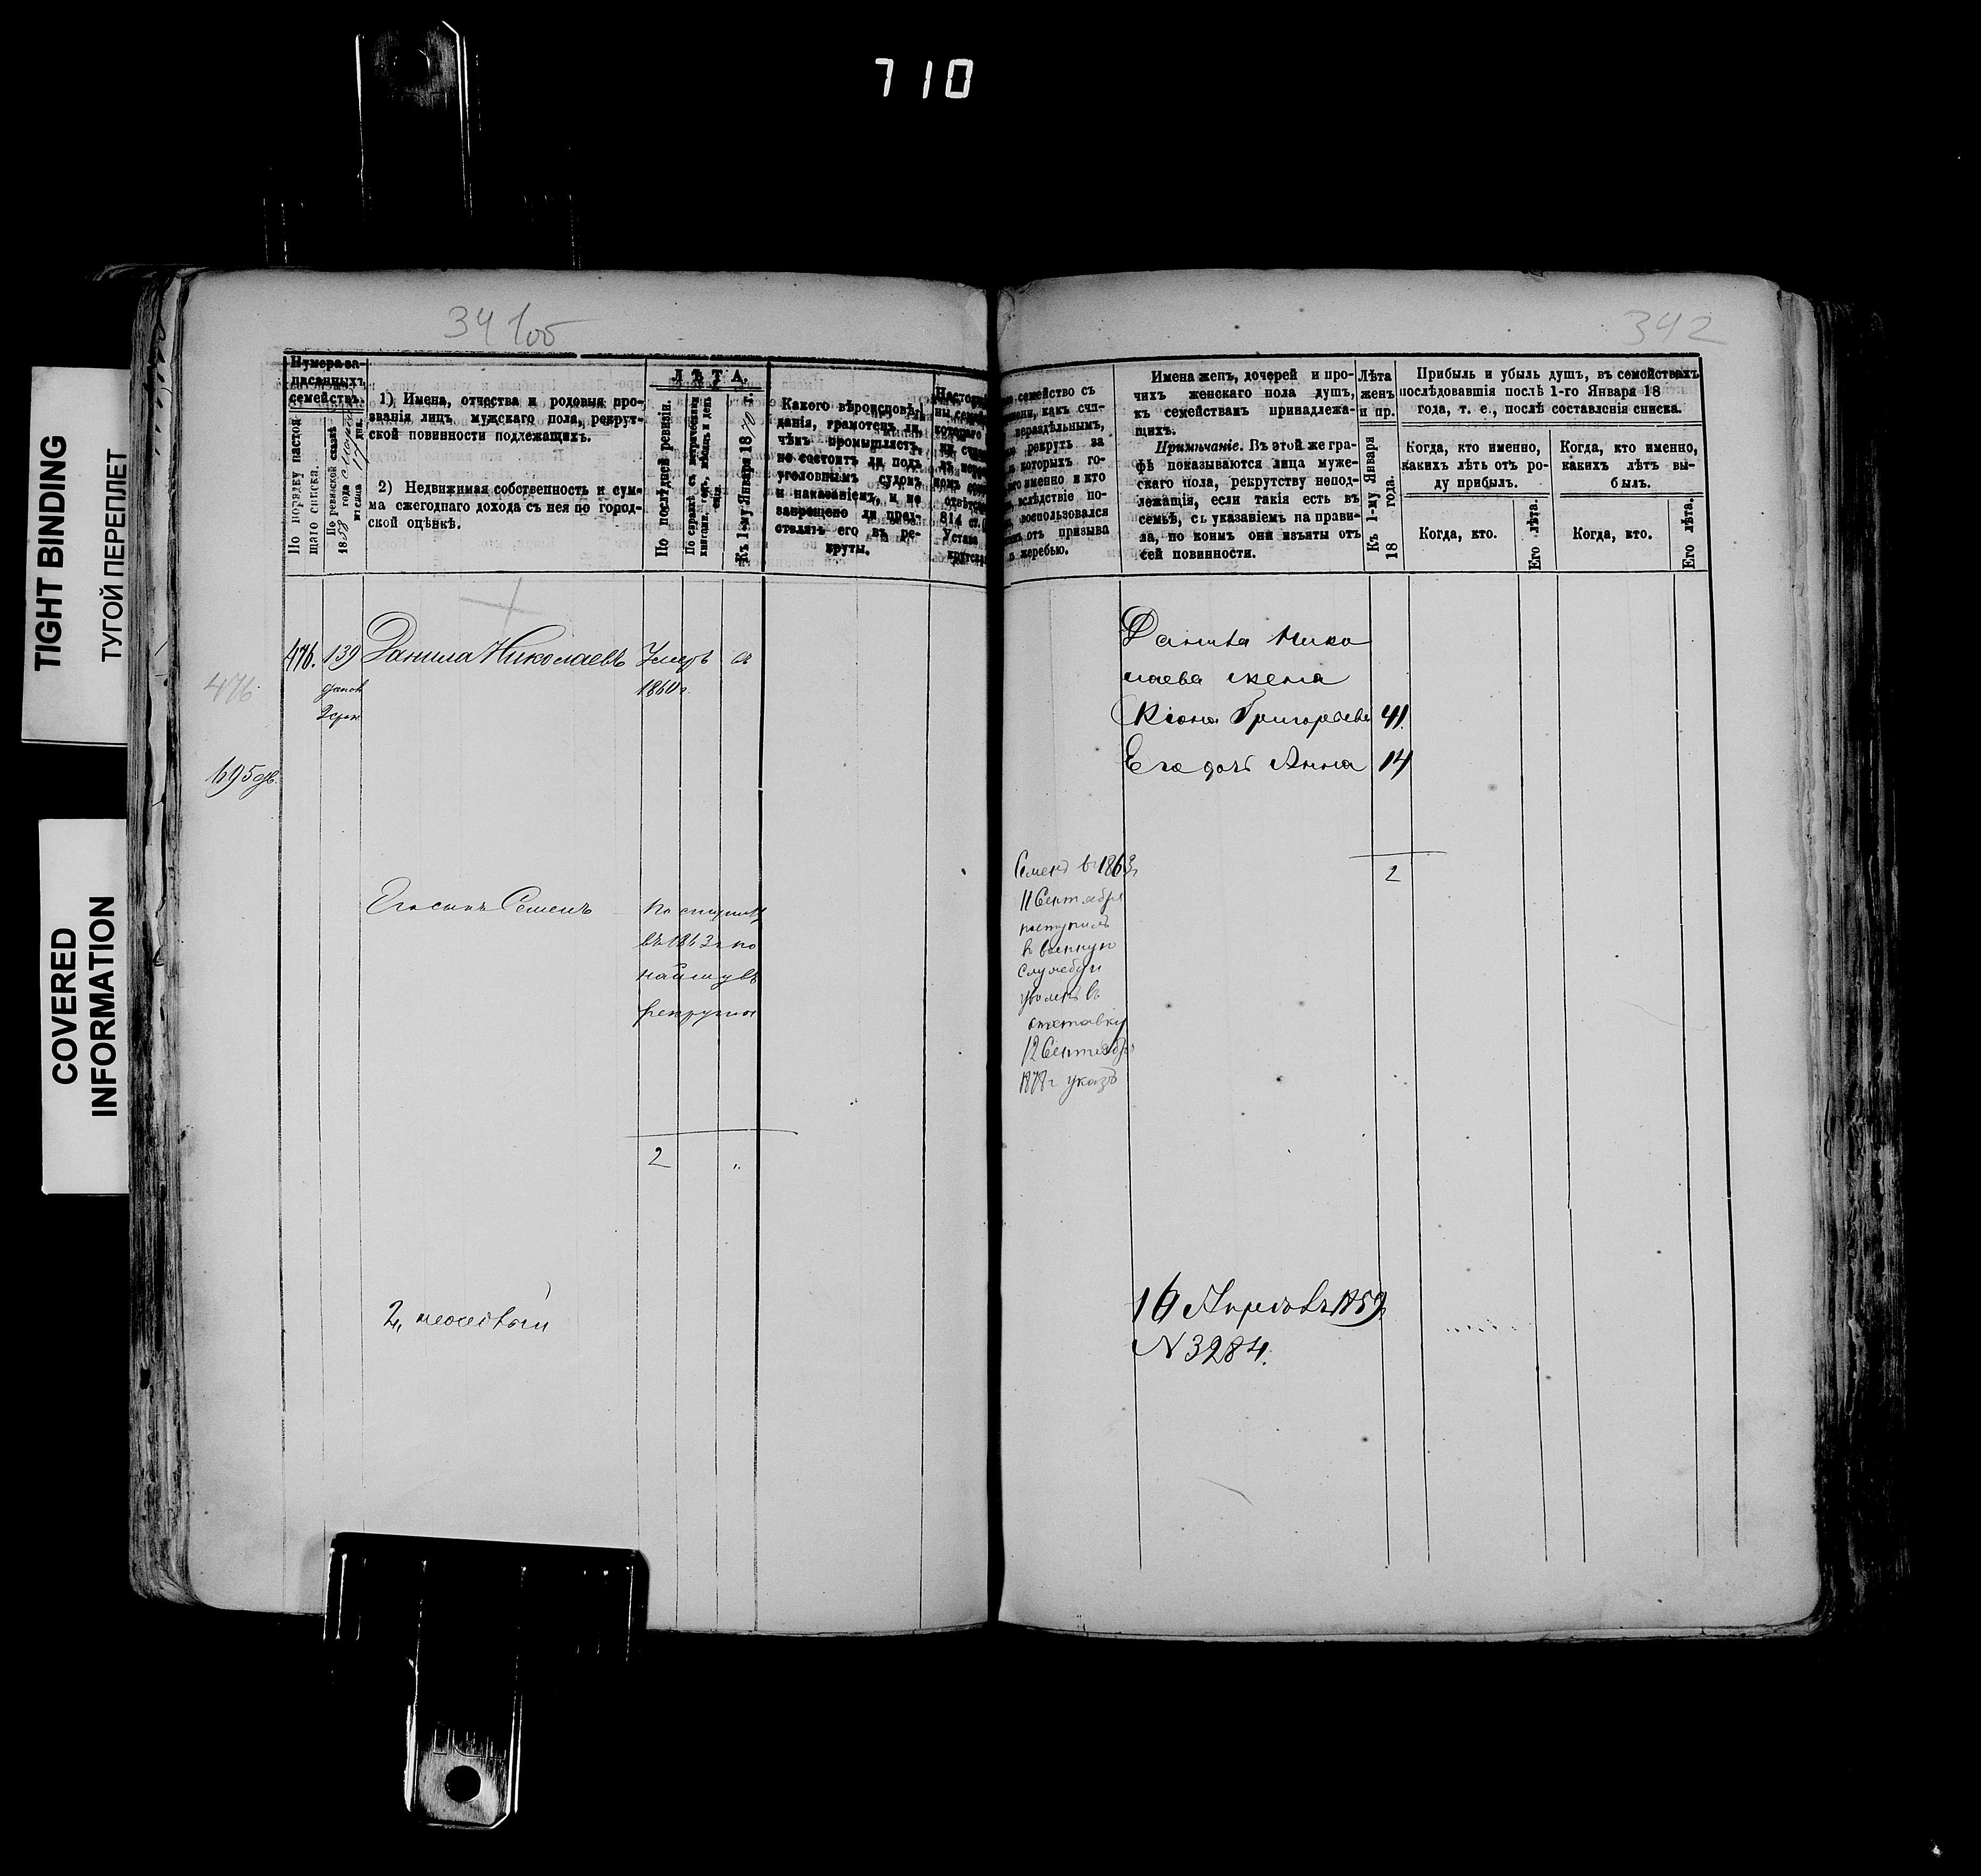 710
TIGHT BINDING
ТУГОЙ ПЕРЕПЛЕТ
COVERED
INFORMATION
341об
Нумера за-
писанныхъ
семействъ.
По порядку настоя-
щаго списка.
По ревизской сказкѣ
1858 года
мѣсяца 17 дня.
1) Имена, отчества и родовыя про-
званія лицъ мужскаго пола, рекрут-
ской повинности подлежащихъ.
2) Недвижимая собственность и сум-
ма ежегоднаго дохода съ нея по город-
ской оцѣнкѣ.
ЛѢТА.
По послѣдней ревизіи.
По справкѣ съ метрическими
книгами, годъ, мѣсяцъ и день
Къ 1-му Января 1870 г.
Какого вѣроисповѣ-
данія, грамотенъ ли,
чѣмъ промышляетъ,
не состоитъ ли подъ
уголовнымъ судомъ
и наказаніемъ, и не
запрещено ли пред-
ставлять его въ ре-
круты.
476. 139 Данила Николаевъ Умеръ
1860 г.
476
695 дв.
Его сынъ Семенъ
въ 1863 г. по
найму въ
рекруты
2
2,
342
семейство съ
какъ счи-
нераздѣльнымъ,
рекрутъ за
которыхъ го-
именно и кто
вслѣдствіе по-
воспользовался
отъ призыва
жеребью.
Имена женъ, дочерей и про-
чихъ женскаго пола душъ,
къ семействамъ принадлежа-
щихъ.
Примѣчаніе. Въ этой же гра-
фѣ показываются лица муже-
скаго пола, рекрутству непод-
лежащія, если такія есть въ
семьѣ, съ указаніемъ на прави-
ла, по коимъ они изъяты отъ
сей повинности.
Лѣта
женъ
и пр.
Къ 1-му Января
18 года.
Прибыль и убыль душъ, въ семействахъ
послѣдовавшія послѣ 1-го Января 18
года, т. е., послѣ составленія списка.
Когда, кто именно,
какихъ лѣтъ отъ ро-
ду прибылъ.
Когда, кто именно,
какихъ лѣтъ вы-
былъ.
Когда, кто.
Его лѣта.
Когда, кто.
Его лѣта.
Данила Нико
лаева жена
Григорьева 41
Его дочь Анна 14
2
Семенъ въ 1863 г
11 Сентября
поступилъ
в военную
службу и
уволенъ въ
отставку
12 Сентября
1878 г указъ
Апреля 1859
N 3284.